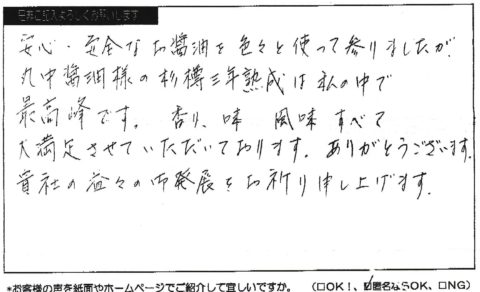 是非ご記入よろしくお願いします
安心・安全なお醤油を色々と使って参りましたが、
丸中醤油様の杉樽三年熟成は私の中で
最高峰です。香り、味 風味 すべて
大満足させていただいております。ありがとうございます。
貴社の益々の御発展をお祈り申し上げます。
*お客様の声を紙面やホームページでご紹介して宜しいですか。 (□OK!、☑匿名ならOK、□NG)